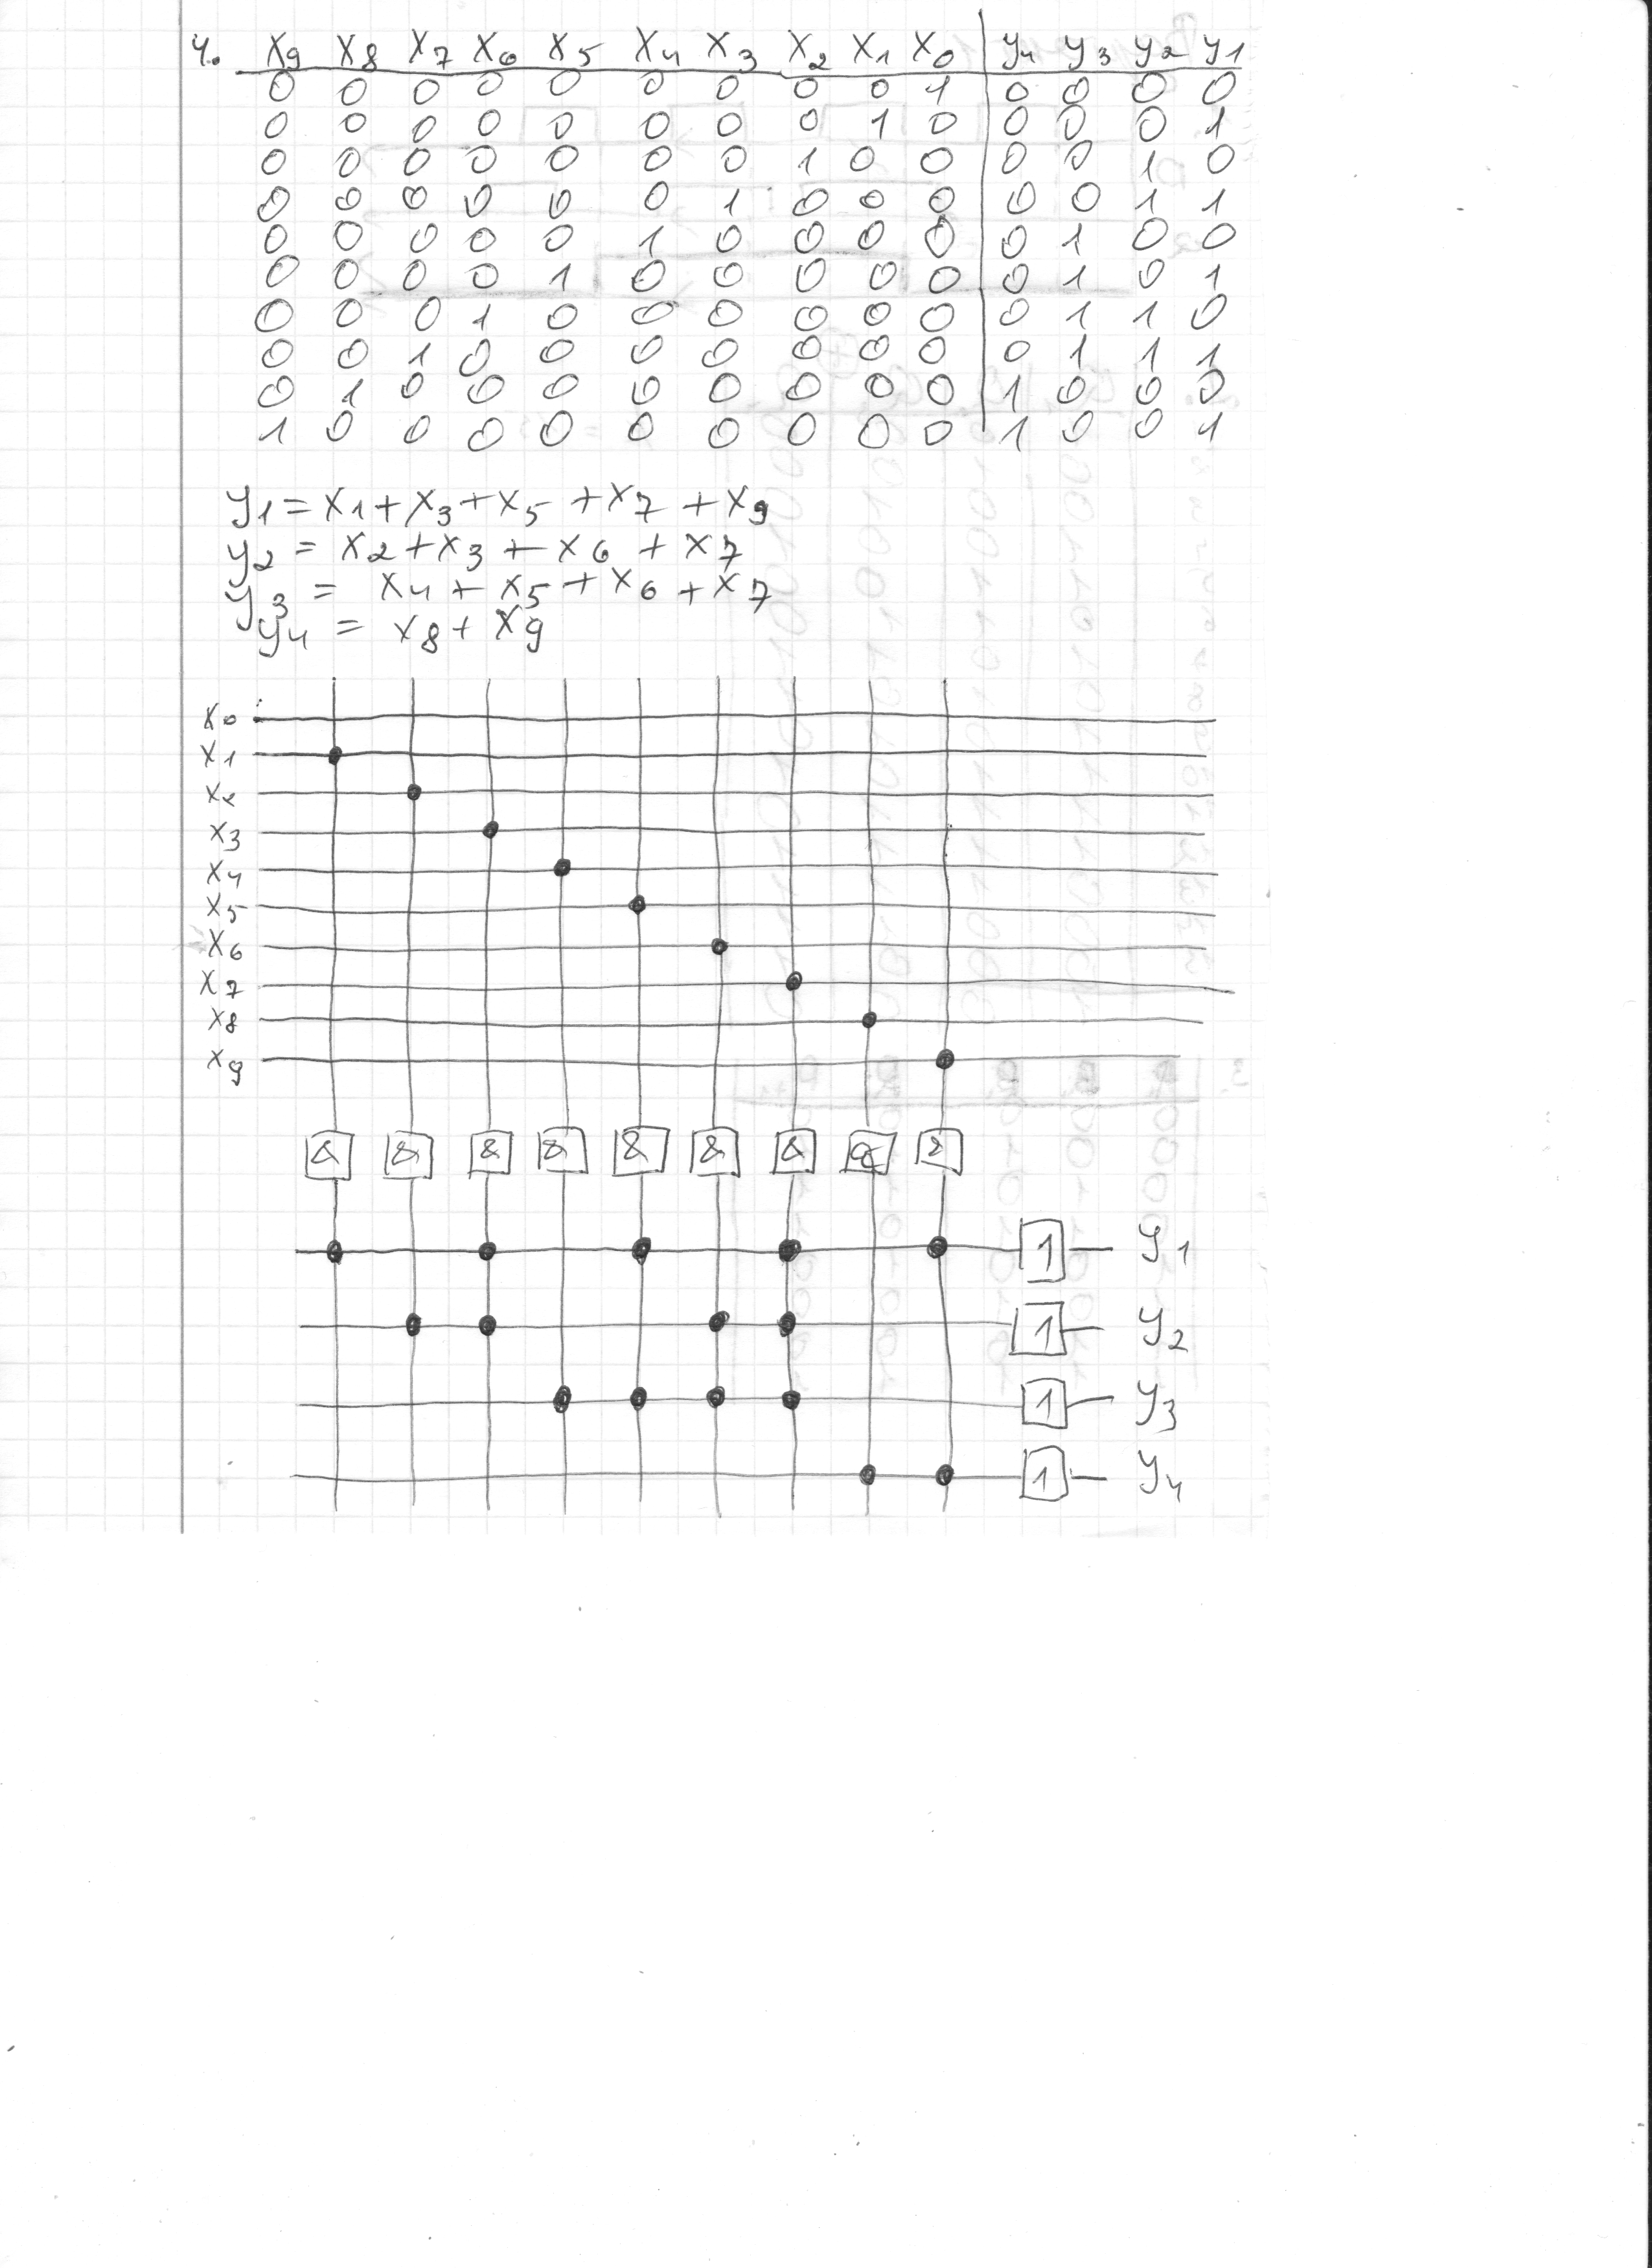 4. X9 X8 X7 X6 X5 X4 X3 X2 X1 X0 y4 y3 y2 y1
0 0 0 0 0 0 0 0 0 1 0 0 0 0
0 0 0 0 0 0 0 0 1 0 0 0 0 1
0 0 0 0 0 0 0 1 0 0 0 0 1 0
0 0 0 0 0 0 1 0 0 0 0 0 1 1
0 0 0 0 0 1 0 0 0 0 0 1 0 0
0 0 0 0 1 0 0 0 0 0 0 1 0 1
0 0 0 1 0 0 0 0 0 0 0 1 1 0
0 0 1 0 0 0 0 0 0 0 0 1 1 1
0 1 0 0 0 0 0 0 0 0 1 0 0 0
1 0 0 0 0 0 0 0 0 0 1 0 0 1
y1 = x1 + x3 + x5 + x7 + x9
y2 = x2 + x3 + x6 + x7
y3 = x4 + x5 + x6 + x7
y4 = x8 + x9
x0
x1
x2
x3
x4
x5
x6
x7
x8
x9
& & & & & & & & &
1 y1
1 y2
1 y3
1 y4